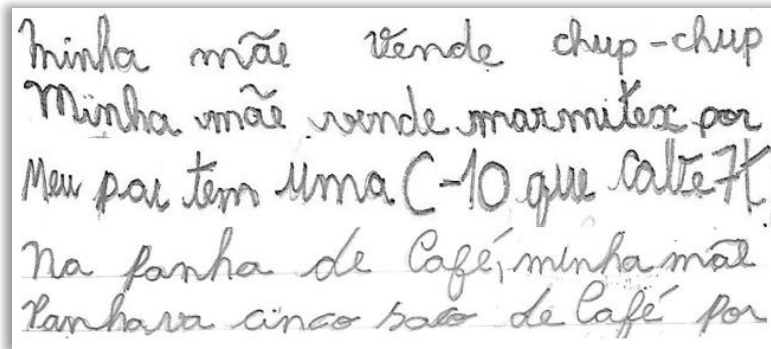 Minha mãe vende chup-chup
Minha mãe vende marmitex por
Meu pai tem uma C-10 que cabe 7t
Na panha de Café, minha mãe
Panhava cinco saco de Café por